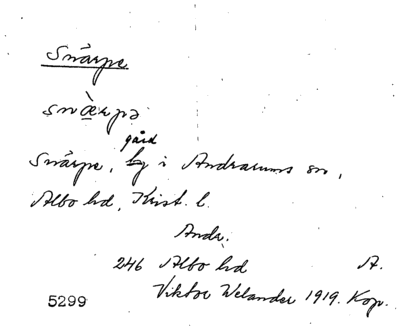 Snärpe
snæ̀rpə
gård
Snärpe, by i Andrarums sn,
Albo hd, Krist. l.
Andr.
246 Albo hd A.
5299 Viktor Welander 1919. Kop.